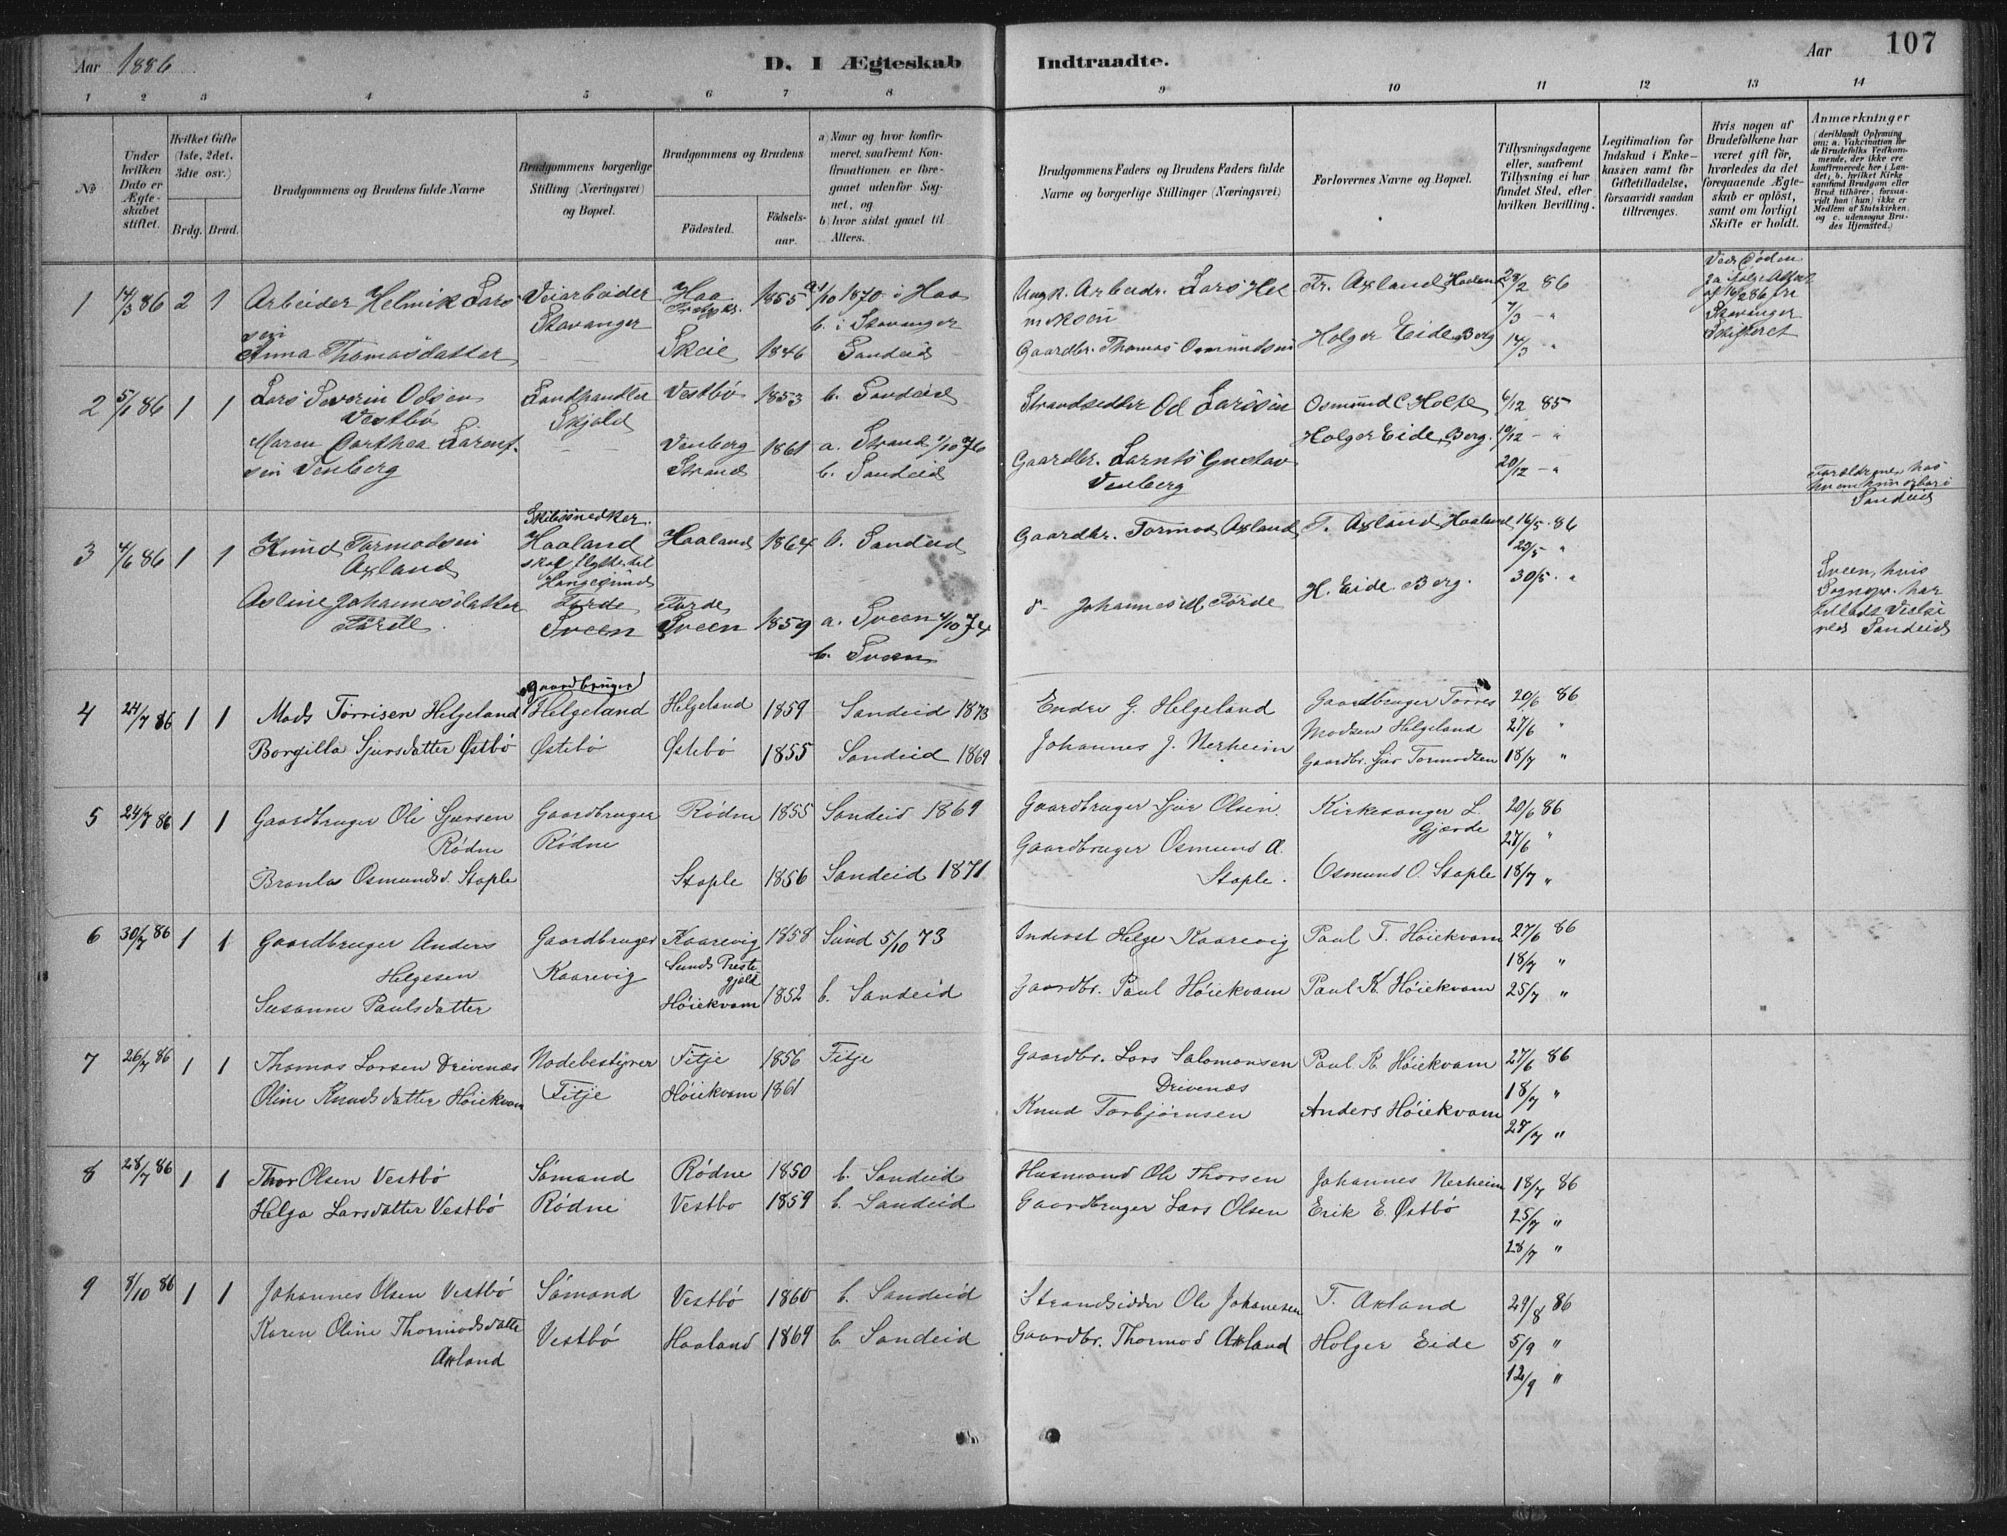 Aar 1886
D. I Ægteskab
Indtraadte.
Aar
107
1 2 3 4 5 6 7 8 9 10 11 12 13 14
No
Under hvilken Dato er Ægteskabet stiftet.
Hvilket Gifte (1ste, 2det, 3die osv.)
Brdg. Brud.
Brudgommens og Brudens fulde Navne
Brudgommens borgerlige Stilling (Næringsvei) og Bopæl.
Brudgommens og Brudens
Födested.
Födselsaar.
a) Naar og hvor konfirmeret, saafremt Konfirmationen er foregaaet udenfor Sognet, og
b) hvor sidst gaaet til Alters.
Brudgommens Faders og Brudens Faders fulde Navne og borgerlige Stillinger (Næringsvei)
Forlovernes Navne og Bopæl.
Tillysningsdagene eller, saafremt Tillysning ei har fundet Sted, efter hvilken Bevilling.
Legitimation for Indskud i Enkekassen samt for Giftetilladelse, forsaavidt saadan tiltrænges.
Hvis nogen af Brudefolkene har været gift för, hvorledes da det foregaaende Ægteskab er oplöst, samt om lovligt Skifte er holdt.
Anmærkninger
(deriblandt Oplysning om: a. Vakcination for de Brudefolks Vedkommende, der ikke ere konfirmerede her i Landet, b. hvilket Kirkesamfund Brudgom eller Brud tilhörer, forsaavidt han (hun) ikke er Medlem af Statskirken, og c. udensogns Brudes Hjemsted.)
1 14/3 86 2 1 Arbeider Helmik Lars- Veiarbeider Haa 1855 a 1/10 1870 i Haa
sen Stavanger b. i Stavanger
Anna Thomasdatter Skeie 1846 Sandeid
Arbeidr. Lars Hel
miksen
Gaardbr. Thomas Osmundsen
Tr. Axland Haaland 28/2 86
7/3 - "
Holger Eide Berg 14/3 "
Ved Döden
af 16/2 86 fra
Stavanger
Skifteret
2 5/1 86 1 1 Lars Severin Odsen Landhandler Vestbø 1853 b. Sandeid
Vestbø Skjold
Maren Dorthea Larent- Venberg 1861 a. Strand 1/10 76
sen Venberg Strand b. Sandeid
Strandsidder Od Larsen Osmund C Holte 6/12 85
Holger Eide, Berg. 19/12 - "
Gaardbr. Larnts Gustav 20/12 - "
Venberg
Forældrene hos
Sandeid
3 4/6 86 1 1 Knud Tormodsen Skibssnedker Haaland 1864 b. Sandeid
Axland Haaland
skal flytte til
Haugesund
Asline Johannesdatter Førde Førde
Førde Sveen Sveen 1859 a. Sveen 4/10 74
b. Sveen
Gaardbr. Tormod Axland T. Axland Haaland 16/5 86
23/5 "
Johannes M. Førde H. Eide Berg. 30/5 "
Sveen, hvis
Sognepr. har
tilladt Vielse
ved Sandeid
4 24/7 86 1 1 Mads Tørrisen Helgeland Gaardbruger Helgeland Helgeland 1859 Sandeid 1873
Borgilla Sjursdatter Østbø Østebø Østebø 1855 Sandeid 1869
Endre G. Helgeland Gaardbruger Tørres 20/6 86
Johannes J. Nerheim Madsen Helgeland 27/6 "
Gaardbr. Sjur Tormodsen 18/7 "
5 24/7 86 1 1 Gaardbruger Ole Sjursen Gaardbruger Rødne 1855 Sandeid 1869
Rødne Rødne
Branlas Osmundsd. Stople Stople 1856 Sandeid 1871
Gaardbruger Sjur Olsen. Kirkesanger L. 20/6 86
Gjærde 27/6 "
Gaardbruger Osmund A.
Stople. Osmund O. Stople 18/7 "
6 30/7 86 1 1 Gaardbruger Anders Gaardbruger Kaarevig 1858 Sund 5/10 73
Helgesen Kaarevig Sunds Prestegjeld
Susanne Paulsdatter Höiekvam 1852 b. Sandeid
Inderst Helge Kaarevig Paul T. Höiekvam 27/6 86
18/7 "
Gaardbr. Paul Höiekvam Paul K. Höiekvam 25/7 "
7 26/7 86 1 1 Thomas Larsen Drivenæs Nodebestyrer Fitje 1856 Fitje
Oline Knudsdatter Höiekvam Fitje Höiekvam 1861
Gaardbr. Lars Salomonsen Paul K. Höiekvam 27/6 86
Drivenæs 18/7 "
Knud Torbjørnsen Anders Höiekvam 25/7 "
8 28/7 86 1 1 Thor Olsen Vestbø Sømand Rødne 1850 b. Sandeid
Helga Larsdatter Vestbø Rødne Vestbø 1859 b. Sandeid
Husmand Ole Thorsen Johannes Nerheim 18/7 86
Gaardbruger Lars Olsen Erik E. Østbø 25/7 "
28/7 "
9 8/10 86 1 1 Johannes Olsen Vestbø Sømand Vestbø 1860 b. Sandeid
Karen Oline Thormodsdatter Vestbø Haaland 1869 b. Sandeid
Axland
Strandsidder Ole Johanesen T. Axland 29/8 86
Gaardbr. Thormod Axland Holger Eide 5/9 "
12/9 "